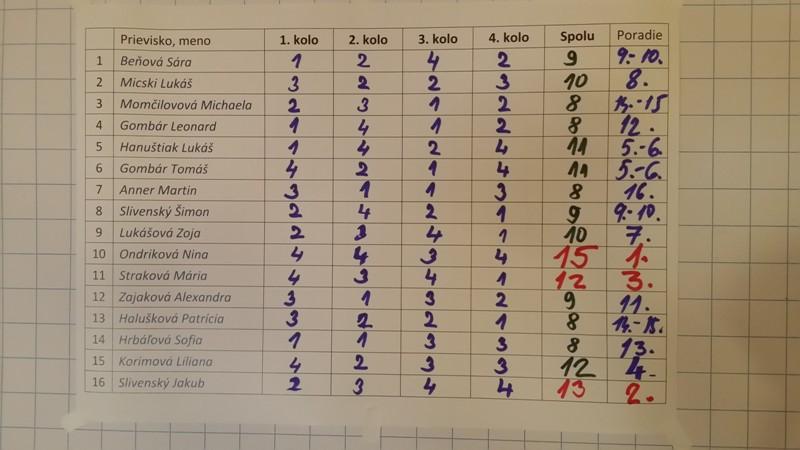 Prievisko, meno 1. kolo 2. kolo 3. kolo 4. kolo Spolu Poradie
1 Beňová Sára 1 2 4 2 9 9.-10.
2 Micski Lukáš 3 2 2 3 10 8.
3 Momčilovová Michaela 2 3 1 2 8 14.-15
4 Gombár Leonard 1 4 1 2 8 12.
5 Hanuštiak Lukáš 1 4 2 4 11 5.-6.
6 Gombár Tomáš 4 2 1 4 11 5.-6.
7 Anner Martin 3 1 1 3 8 16.
8 Slivenský Šimon 2 4 2 1 9 9.-10.
9 Lukášová Zoja 2 3 4 1 10 7.
10 Ondriková Nina 4 4 3 4 15 1.
11 Straková Mária 4 3 4 1 12 3.
12 Zajaková Alexandra 3 1 3 2 9 11.
13 Halušková Patrícia 3 2 2 1 8 14.-15.
14 Hrbáľová Sofia 1 1 3 3 8 13.
15 Korimová Liliana 4 2 3 3 12 4.
16 Slivenský Jakub 2 3 4 4 13 2.